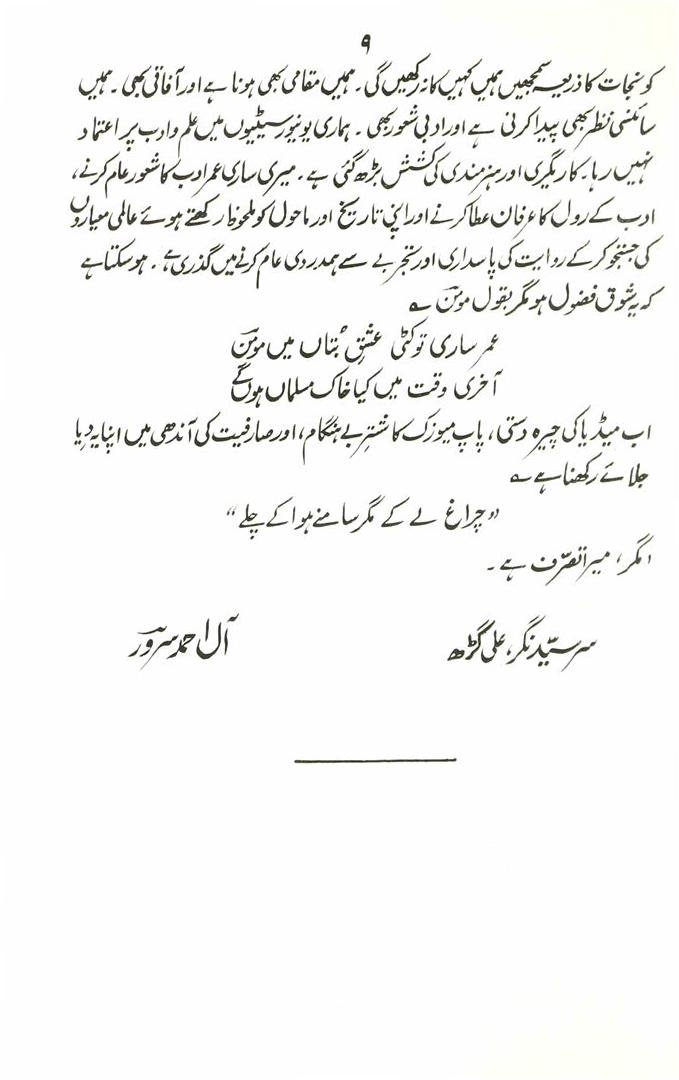 ۹
کو نجات کا ذریعہ سمجھیں ہمیں کہیں کا نہ رکھیں گی۔ ہمیں مقامی بھی ہونا ہے اور آفاقی بھی۔ ہمیں
سائنسی نظر بھی پیدا کرنی ہے اور ادبی شعور بھی۔ ہماری یونیورسیٹیوں میں علم و ادب پر اعتماد
نہیں رہا۔ کاریگری اور ہنرمندی کی کشش بڑھ گئی ہے۔ میری ساری عمر ادب کا شعور عام کرنے،
ادب کے رول کا عرفان عطا کرنے اور اپنی تاریخ اور ماحول کو ملحوظ رکھتے ہوئے عالمی معیاروں
کی جستجو کر کے روایت کی پاسداری اور تجربے سے ہمدردی عام کرنے میں گذری ہے۔ ہو سکتا ہے
کہ یہ شوق فضول ہو مگر بقول مومنؔ ؎
عمر ساری تو کٹی عشقِ بُتاں میں مومنؔ
آخری وقت میں کیا خاک مسلماں ہوں گے
اب میڈیا کی چیرہ دستی، پاپ میوزک کا نشترِ بے ہنگام، اور صارفیت کی آندھی میں اپنا یہ دِیا
جلائے رکھنا ہے ؎
”چراغ لے کے مگر سامنے ہوا کے چلے“
’مگر‘ میرا تصرّف ہے۔
سر سیّد نگر، علی گڑھ    آل احمد سرورؔ